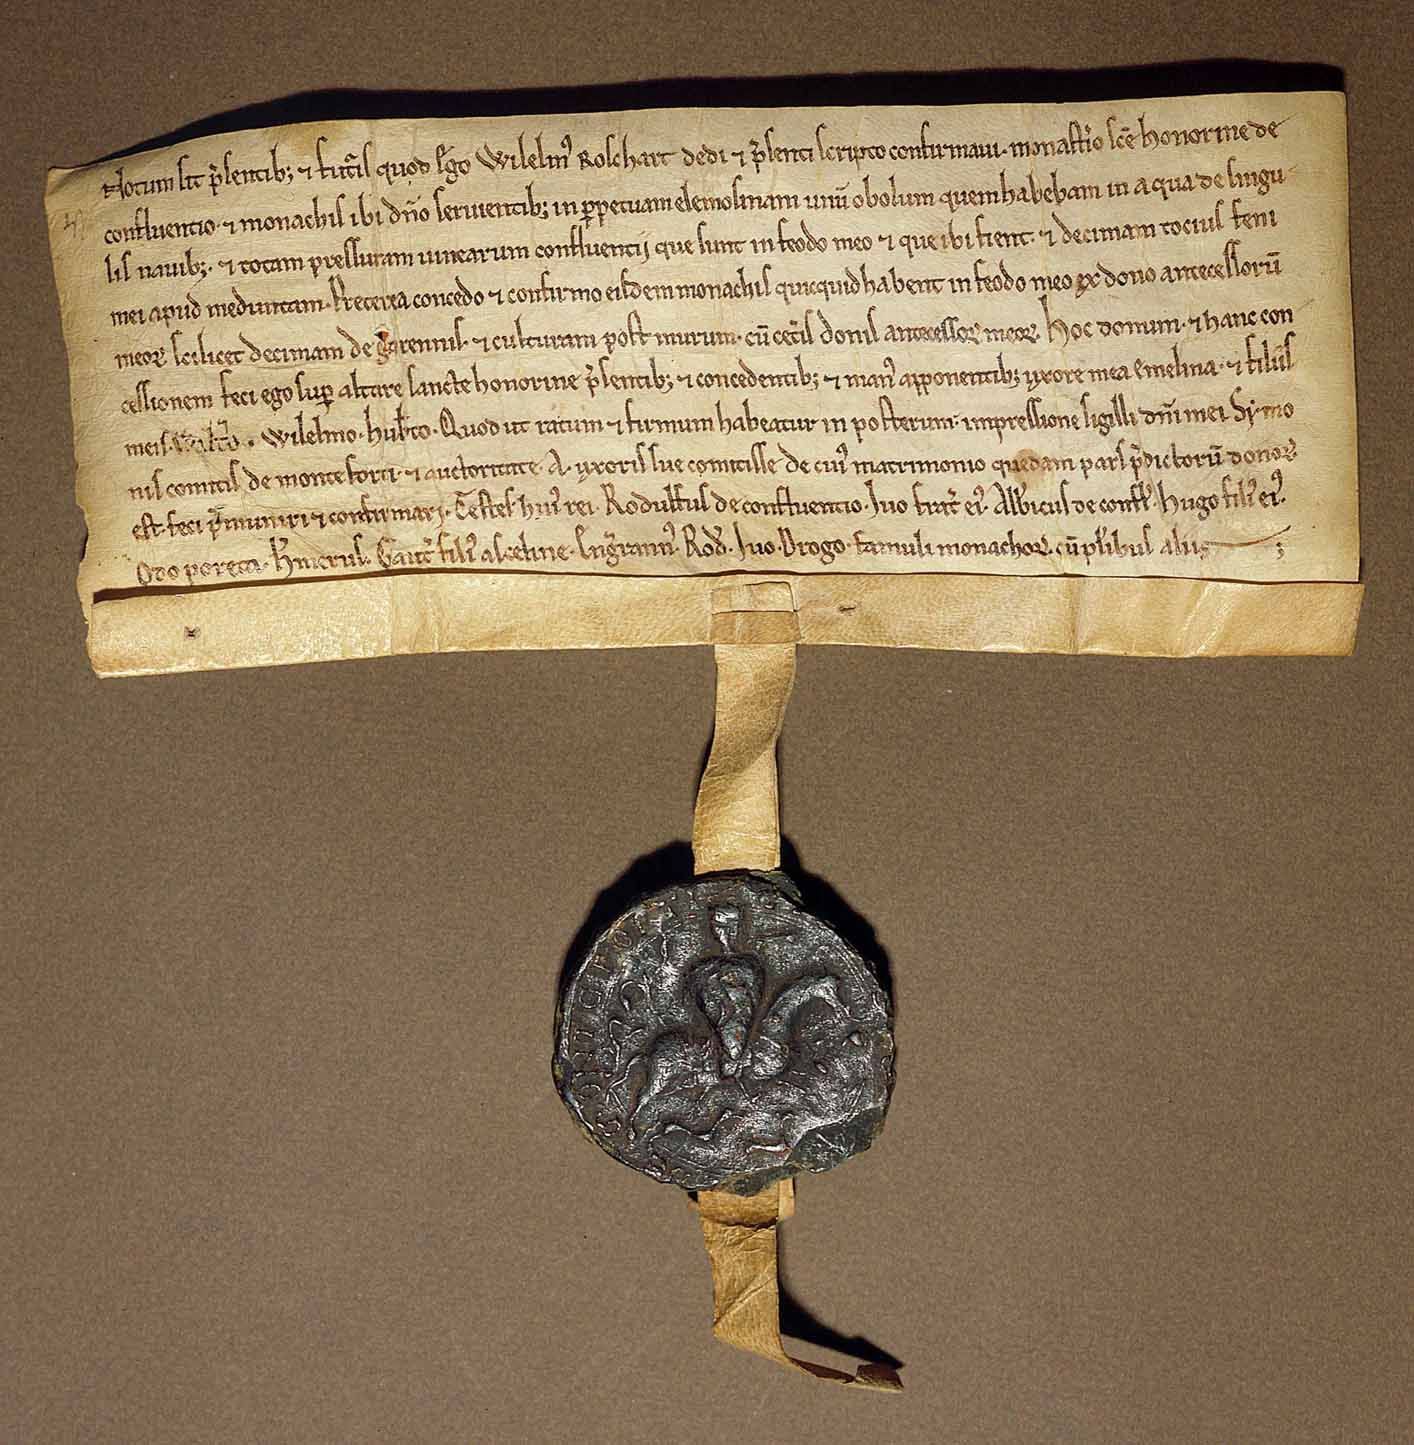 Notum sit p̄sentib; ⁊ futur̄is quod ego Wilelm᾽ Roschart dedi ⁊ p̄senti scripto confirmaui · monast̄io sc̄e honorine de
confluentio · ⁊ monachis ibi dn̄o seruientib; in ꝑpetuam elemosinam unū obolum quem habebam in aqua de singu
lis nauib; · ⁊ totam pressuram uinearum confluentij que sunt in feodo meo ⁊ que ibi fient · ⁊ decimam tocius feni
mei apud meduntam · Preterea concedo ⁊ confirmo eisdem monachis quicquid habent in feodo meo ex dono antecessorū
meoꝝ scilicet decimam de garennis · ⁊ culturam post murum · cū cet̄is donis antecessoꝝ meoꝝ Hoc donum · ⁊ hanc con
cessionem feci ego suꝑ altare sancte honorine p̄sentib; ⁊ concedentib; ⁊ man᾽ apponentib; uxore mea emelina · ⁊ filiis
meis · Wilelmo · hub̄to · Quod ut ratum ⁊ firmum habeatur in posterum · impressione sigilli dn̄i mei Sy·mo
nis comitis de monte forti · ⁊ auctoritate · A · uxoris sue comitisse de cui᾽ matrimonio quedam pars p̄dictorū donoꝝ
est · feci p̄muniri ⁊ confirmari · Testes hui᾽ rei · Rodulfus de confluentio · Iuo frat̄ ei᾽ · Alb̄icus de confl̄ · Hugo fili᾽ ei᾽ ·
Odo poreta · H̄merus · Gaut̄ fili᾽ asceline · Inḡrann᾽ · Rod̄ · Iuo · Drogo · famuli monachoꝝ · cū pl̄ibus aliis ;